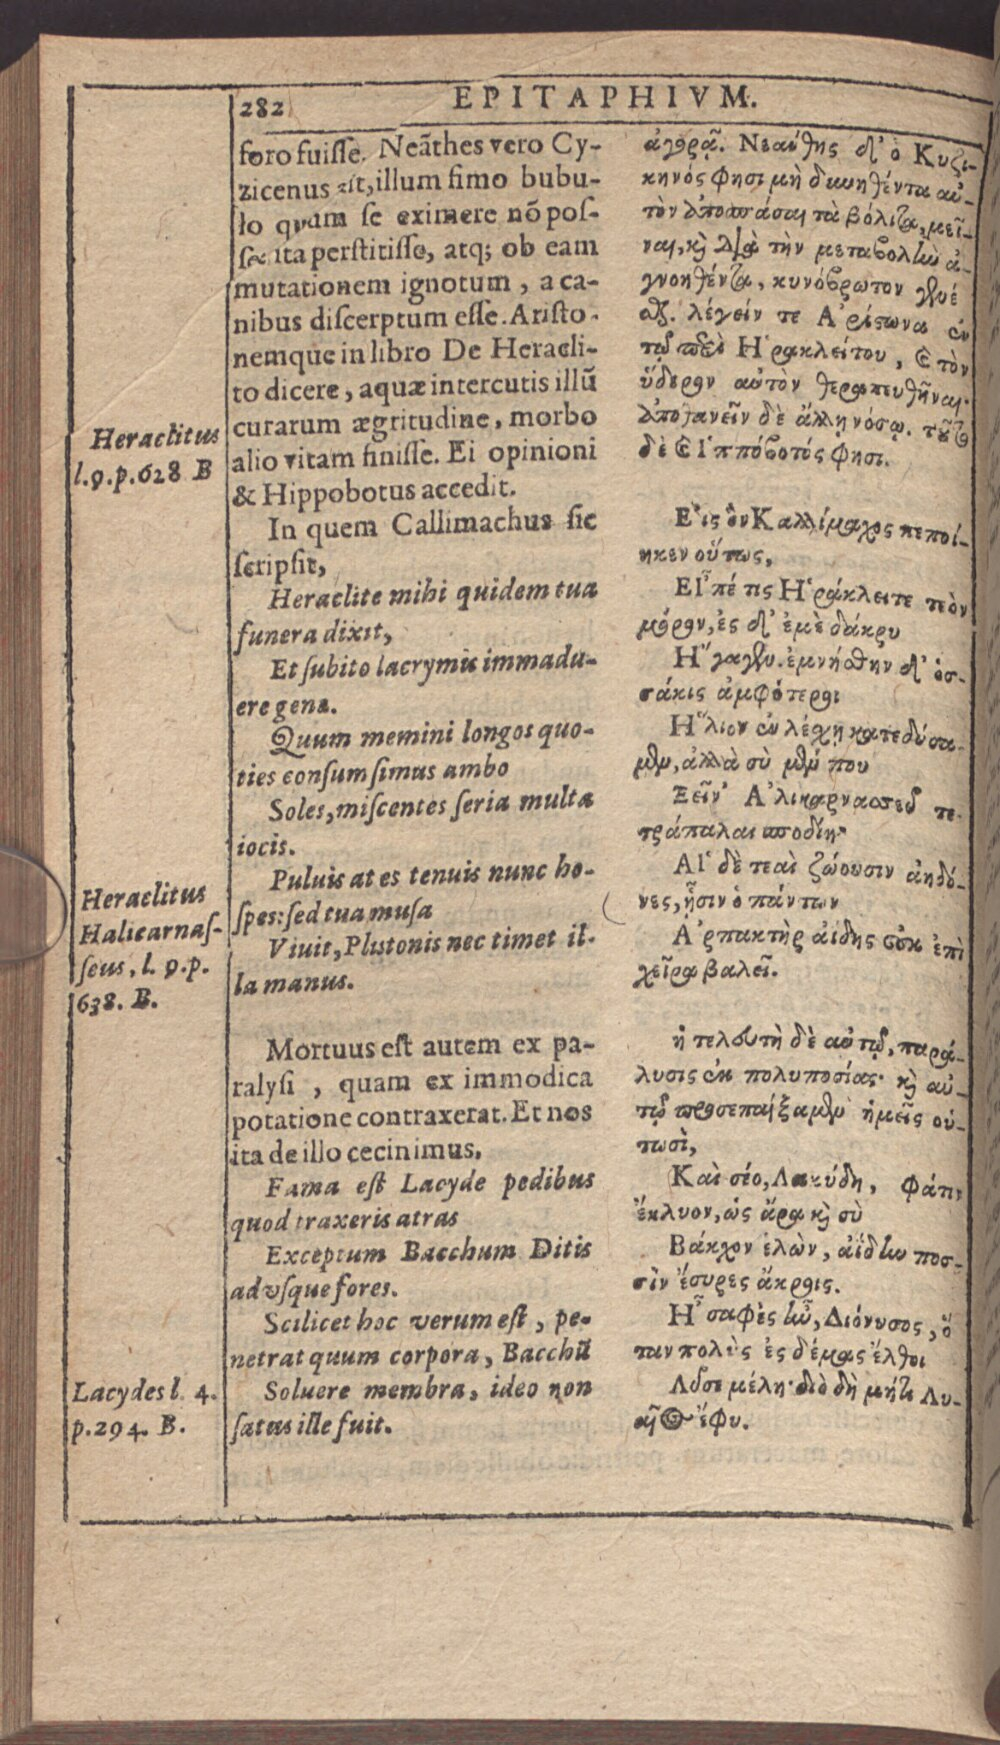 282
EPITAPHIVM.
Heraclitus
l.9.p.628 B
Heraclitus
Halicarnaſ-
ſeus, l. 9.p.
638. B.
Lacydes l. 4.
p.294. B.
foro fuiſſe. Neãthes vero Cy-
zicenus ait, illum fimo bubu-
lo quum ſe eximere nõ poſ-
ſet ita perſtitiſſe, atq; ob eam
mutationem ignotum, a ca-
nibus diſcerptum eſſe. Ariſto-
nemque in libro De Heracli-
to dicere, aquæ intercutis illũ
curarum ægritudine, morbo
alio vitam finiſſe. Ei opinioni
& Hippobotus accedit.
In quem Callimachus ſic
ſcripſit,
Heraclite mihi quidem tua
funera dixit,
Et ſubito lacrymis immadu-
ere genæ.
Quum memini longos quo-
ties conſumſimus ambo
Soles, miſcentes ſeria multa
iocis.
Puluis at es tenuis nunc ho-
ſpes: ſed tua muſa
Viuit, Plutonis nec timet il-
la manus.
Mortuus eſt autem ex pa-
ralyſi, quam ex immodica
potatione contraxerat. Et nos
ita de illo cecinimus.
Fama eſt Lacyde pedibus
quod traxeris atras
Exceptum Bacchum Ditis
ad vſque fores.
Scilicet hoc verum eſt, pe-
netrat quum corpora, Bacchũ
Soluere membra, ideo non
ſatus ille fuit.
ἀγορᾷ. Νεάνθης δ' ὁ Κυζι-
κηνός φησι μὴ δυνηθέντα αὐ-
τὸν ἀποσπάσαι τὰ βόλιτα, μεῖ-
ναι, καὶ διὰ τὴν μεταβολὴν ἀ-
γνοηθέντα, κυνόβρωτον γενέ
σθαι. λέγειν τε Ἀρίστωνα ἐν
τῷ περὶ Ἡρακλείτου, καὶ τὸν
ὕδερον αὐτὸν θεραπευθῆναι·
ἀποθανεῖν δὲ ἄλλῃ νόσῳ. τοῦτο
δὲ καὶ Ἱππόβοτός φησι.
Εἰς ὃν Καλλίμαχος πεποί-
ηκεν οὕτως,
Εἶπέ τις Ἡράκλειτε τεὸν
μόρον, ἐς δ' ἐμὲ δάκρυ
Ἤγαγεν. ἐμνήσθην δ' ὁσ-
σάκις ἀμφότεροι
Ἥλιον ἐν λέσχῃ κατεδύσα-
μεν, ἀλλὰ σὺ μέν που
Ξεῖν' Ἁλικαρνασσεῦ τε-
τράπαλαι σποδίη·
Αἱ δὲ τεαὶ ζώουσιν ἀηδό-
νες, ᾗσιν ὁ πάντων
Ἁρπακτὴρ ἀίδης οὐκ ἐπὶ
χεῖρα βαλεῖ.
ἡ τελευτὴ δὲ αὐτῷ, παρά-
λυσις ἐκ πολυποσίας· καὶ αὐ-
τῷ προσεπαίξαμεν ἡμεῖς οὑ-
τωσὶ,
Καὶ σέο, Λακύδη, φάτιν
ἔκλυον, ὡς ἄρα καὶ σὺ
Βάκχον ἑλὼν, ἀΐδην ποσ-
σὶν ἔσυρες ἄκροις.
Ἦ σαφὲς ἦν, Διόνυσος, ὅ
ταν πολὺς ἐς δέμας ἔλθοι
Λῦσε μέλη· διὸ δὴ μήτι Λυ-
αῖος ἔφυ.